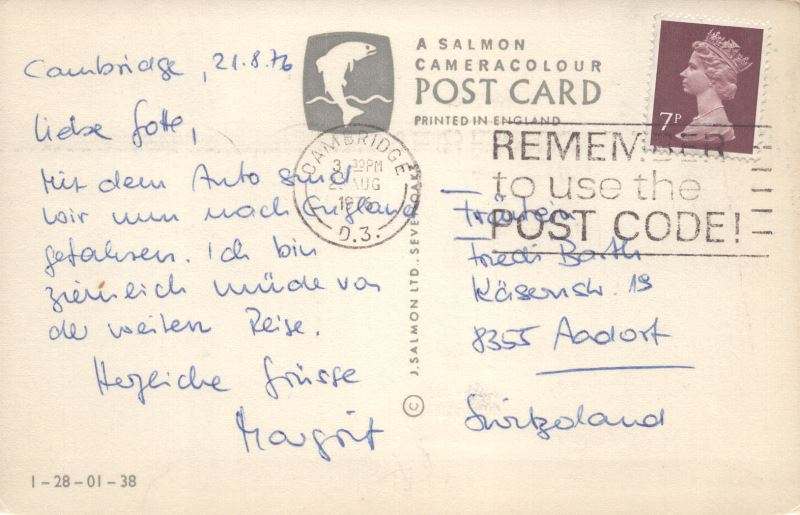 Cambridge, 21.8.76
Liebe Gotte,
Mit dem Auto sind
wir nun nach England
gefahren. Ich bin
ziemlich müde von
der weiten Reise.
Herzliche Grüsse
Margrit
1-28-01-38
A SALMON
CAMERACOLOUR
POST CARD
PRINTED IN ENGLAND
© J. SALMON LTD., SEVENOAKS
7P
CAMBRIDGE
3 30PM
AUG
1976
D.3.
REMEMBER
to use the
POST CODE!
Fräulein
Friedi Barth
8355 Aadorf
Switzerland